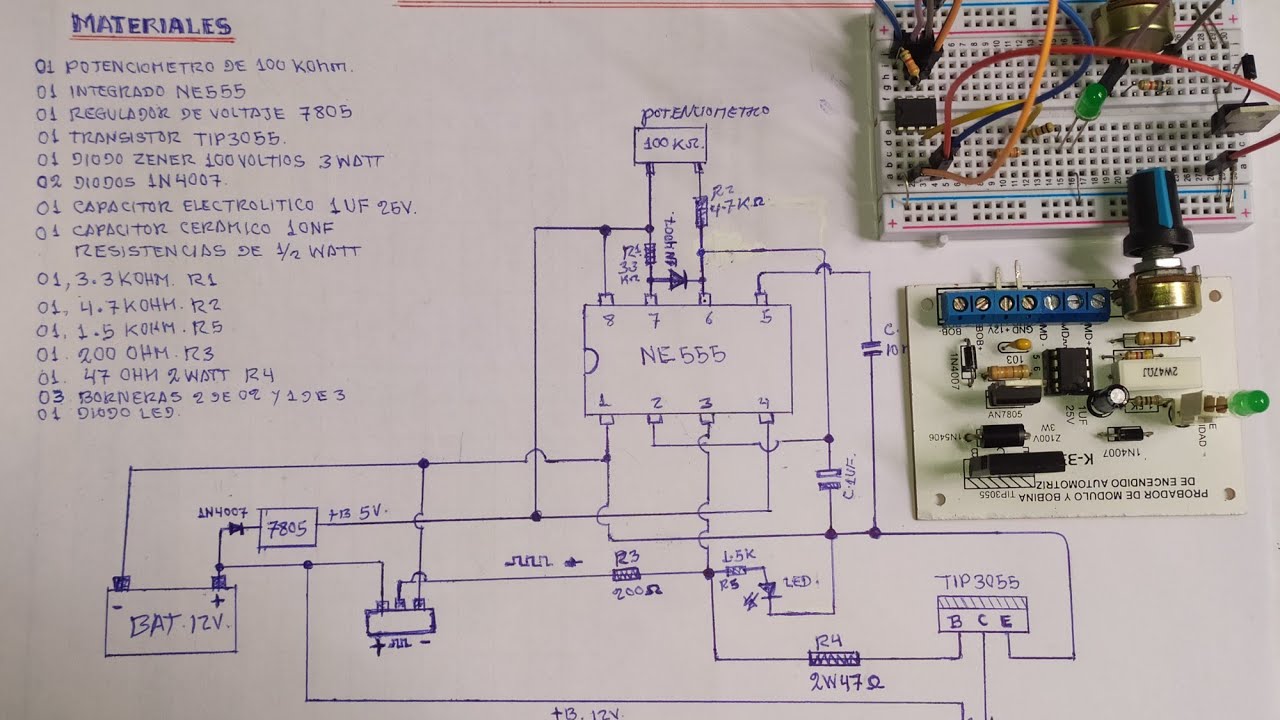 MATERIALES
01 POTENCIOMETRO DE 100 KOhm.
01 INTEGRADO NE555
01 REGULADOR DE VOLTAJE 7805
01 TRANSISTOR TIP3055.
01 DIODO ZENER 100 VOLTIOS 3 WATT
02 DIODOS 1N4007.
01 CAPACITOR ELECTROLITICO 1UF 25V.
01 CAPACITOR CERAMICO 10NF
RESISTENCIAS DE 1/2 WATT
01, 3.3 KOHM. R1
01, 4.7 KOHM. R2
01, 1.5 KOHM. R5
01. 200 OHM. R3
01. 47 OHM 2 WATT R4
03 BORNERAS 2 DE 02 Y 1 DE 3
01 DIODO LED.
POTENCIOMETRO
100 KΩ.
R2
4.7 KΩ
R1
3.3
KΩ
8 7 6 5
NE 555
1 2 3 4
C.
10
C. 1UF.
1N4007
7805
+B 5V.
- +
BAT. 12V.
+ -
R3
200Ω
1.5K
R5
LED.
R4
2W47Ω
TIP3055
B C E
+B. 12V.
BOB-
BOB+
GND +12V
MD-
MD+
1N4007
103
5 6
2W47Ω
AN7805
1UF
25V
1.5K
1N5406
Z100V
3W
1N4007
TIP3055
K-3
PROBADOR DE MODULO Y BOBINA
DE ENCENDIDO AUTOMOTRIZ